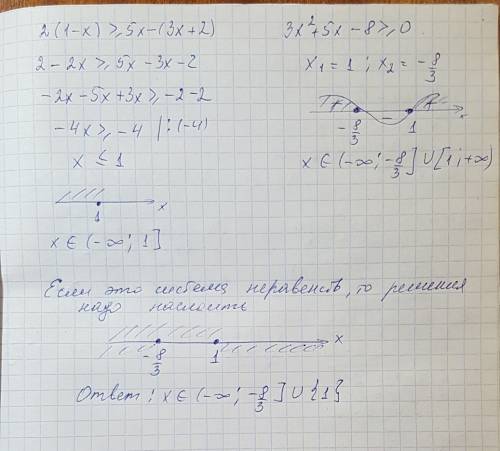 2(1-x) ≥ 5x-(3x+2)
2-2x ≥ 5x-3x-2
-2x-5x+3x ≥ -2-2
-4x ≥ -4 | :(-4)
x ≤ 1
1 x
x ∈ (-∞; 1]
3x²+5x-8 ≥ 0
x₁ = 1 ; x₂ = -8/3
+ - +
-8/3 1 x
x ∈ (-∞; -8/3] ∪ [1; +∞)
Если это система неравенств, то решения
надо наслоить
-8/3 1 x
Ответ: x ∈ (-∞; -8/3] ∪ {1}